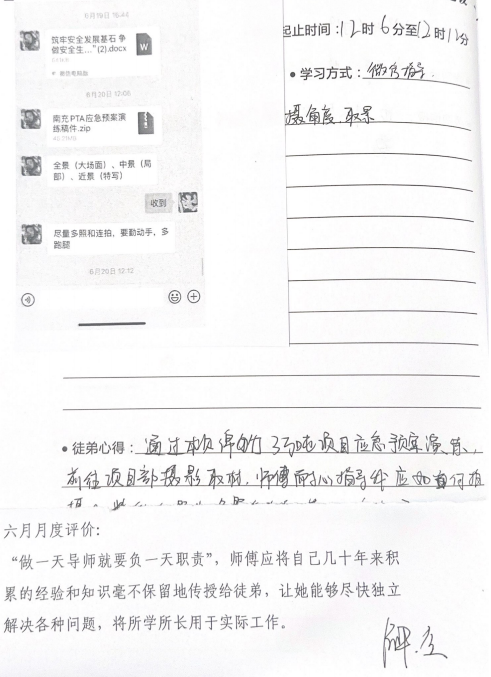 6月19日 16:44
筑牢安全发展基石 争
做安全生..."(2).docx
W
微信电脑版
6月20日 12:06
南充PTA应急预案演
练稿件.zip
全景（大场面）、中景（局
部）、近景（特写）
收到
尽量多照和连拍，要勤动手，多
跑腿
6月20日 12:12
起止时间：12时6分至12时12分
• 学习方式：微信指导.
摄角度、取景
• 徒弟心得：通过本次
项目应急预案演练，
前往项目部摄影取材，师傅耐心指导我应如何拍
六月月度评价：
“做一天导师就要负一天职责”，师傅应将自己几十年来积
累的经验和知识毫不保留地传授给徒弟，让她能够尽快独立
解决各种问题，将所学所长用于实际工作。